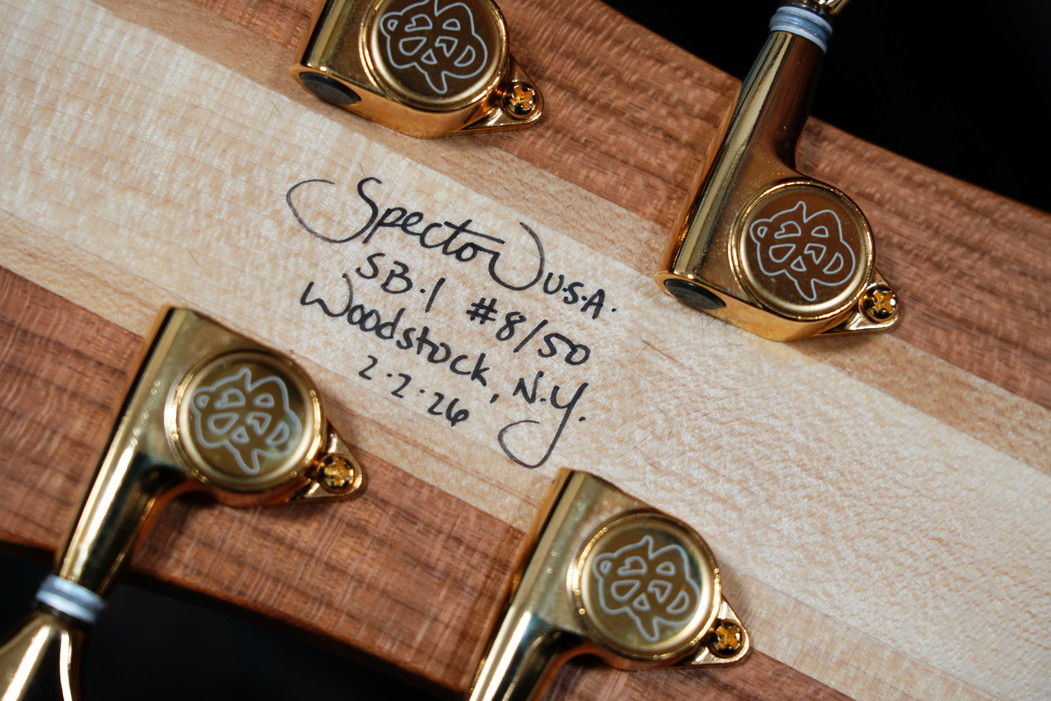 Spector U.S.A.
SB·1 #8/50
Woodstock, N.Y.
2·2·26